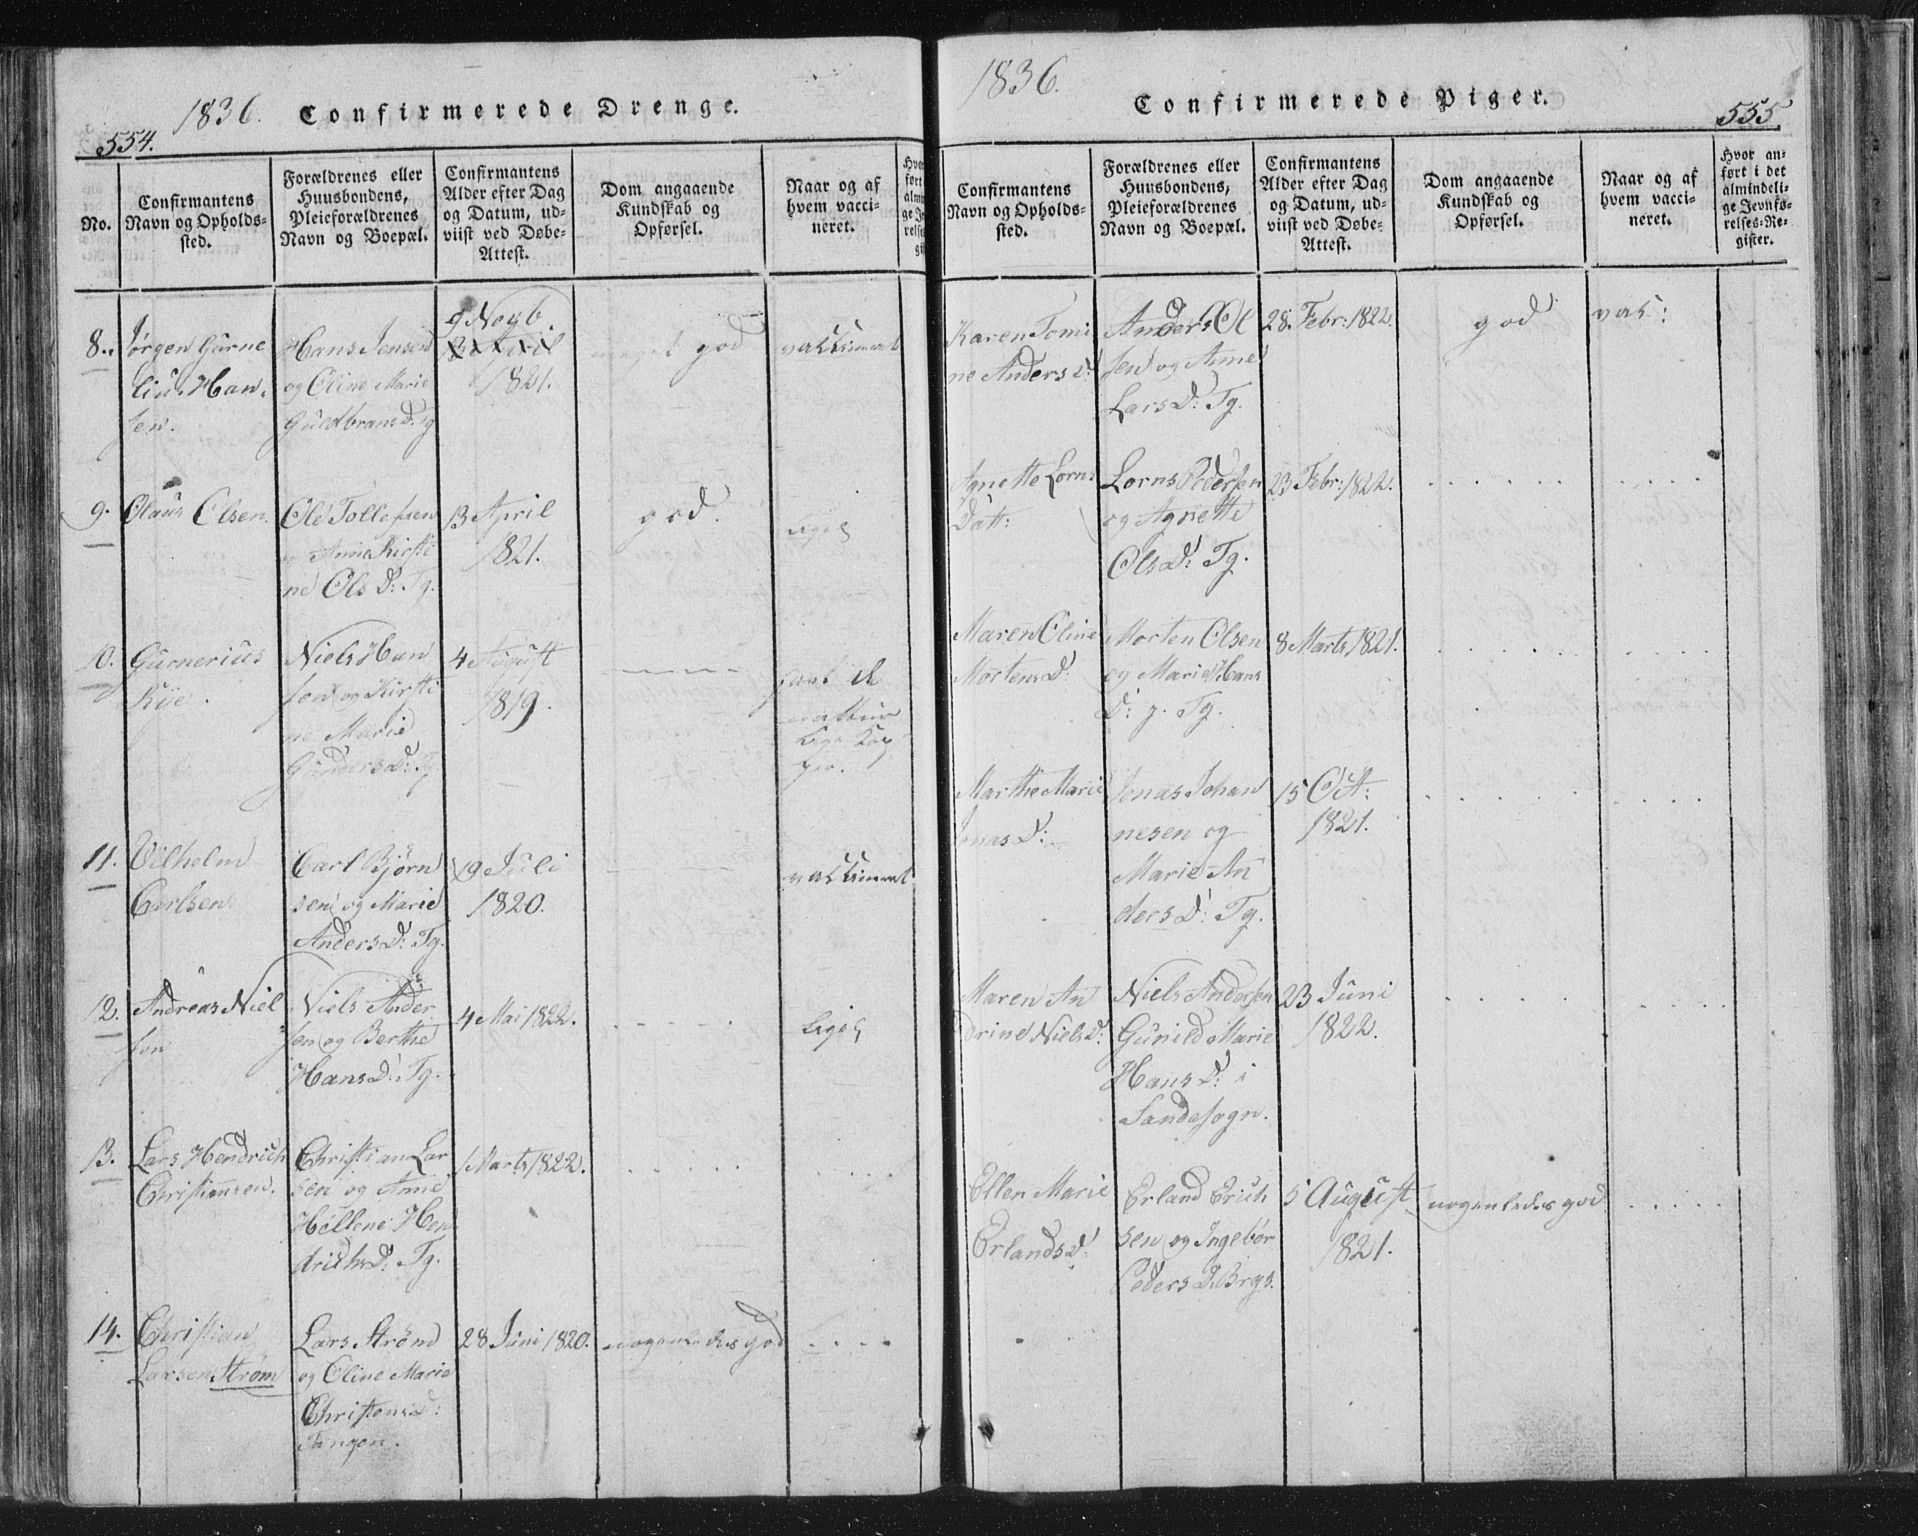 1836. Confirmerede Drenge.
554.
No.
Confirmantens
Navn og Opholds-
sted.
Forældrenes eller
Huusbondens,
Pleieforældrenes
Navn og Boepæl.
Confirmantens
Alder efter Dag
og Datum, ud-
viist ved Døbe-
Attest.
Dom angaaende
Kundskab og
Opførsel.
Naar og af
hvem vacci-
neret.
8.
Jørgen Gurne
lius Han
sen.
Hans Jensen
og Oline Marie
Guldbrands D. Tg
9 Novb.
1821.
god
vakcineret
9.
Olaus Olsen.
Ole Tollefsen
og Anne Kirsti
ne Ols D: Tg.
13 April
1821.
god.
ligel
10.
Gurnerius
Kije.
Niels Han
sen og Kirsti
ne Marie
Gunders D: Tg
4 August
1819.
havt de
natur
lige Kop
per.
11.
Vilhelm
Carlsen
Carl Bjørn
sen og Marie
Anders D: Tg.
19 Juli
1820.
vakcineret
12.
Andreas Niel
sen
Niels Ander
sen og Berthe
Hans D: Tg.
4 Mai 1822.
ligel
13.
Lars Hendrich
Christiansen.
Christian Lar
sen og Anne
Hellene Hen
drichs D: Tg.
1 Marts 1822.
14.
Christian
Larsen Strøm
Lars Strøm
og Oline Marie
Christens D:
Tangen.
28 Juni 1820.
nogenledes god
1836.
Confirmerede Piger.
555
Confirmantens
Navn og Opholds-
sted.
Forældrenes eller
Huusbondens,
Pleieforældrenes
Navn og Boepæl.
Confirmantens
Alder efter Dag
og Datum, ud-
viist ved Døbe-
Attest.
Dom angaaende
Kundskab og
Opførsel.
Naar og af
hvem vacci-
neret.
Hvor an-
ført i det
almindeli-
ge Jevnfø-
relses-Re-
gister.
Karen Tomi
ne Anders D:
Anders Ol
sen og Anne
Lars D: Tg.
28. Febr: 1822.
god
vac:
Agnette Lorns
Datt:
Lorns Pedersen
og Agnette
Ols D: Tg.
23 Febr: 1822.
Maren Oline
Mortens D:
Morten Olsen
og Marie Hans
D: p. Tg.
8 Marts 1821.
Marthe Marie
Jonas D:
Jonas Johan
nesen og
Marie An
ders D: Tg.
15 Oct:
1821.
Maren An
drine Niels D:
Niels Andersen
Gunild Marie
Hans D: i
Sandesogn.
23 Juni
1822.
Ellen Marie
Erlands D:
Erland Erich
sen og Ingebor
Peders D. Brgs.
5 August
1821.
nogenledes god